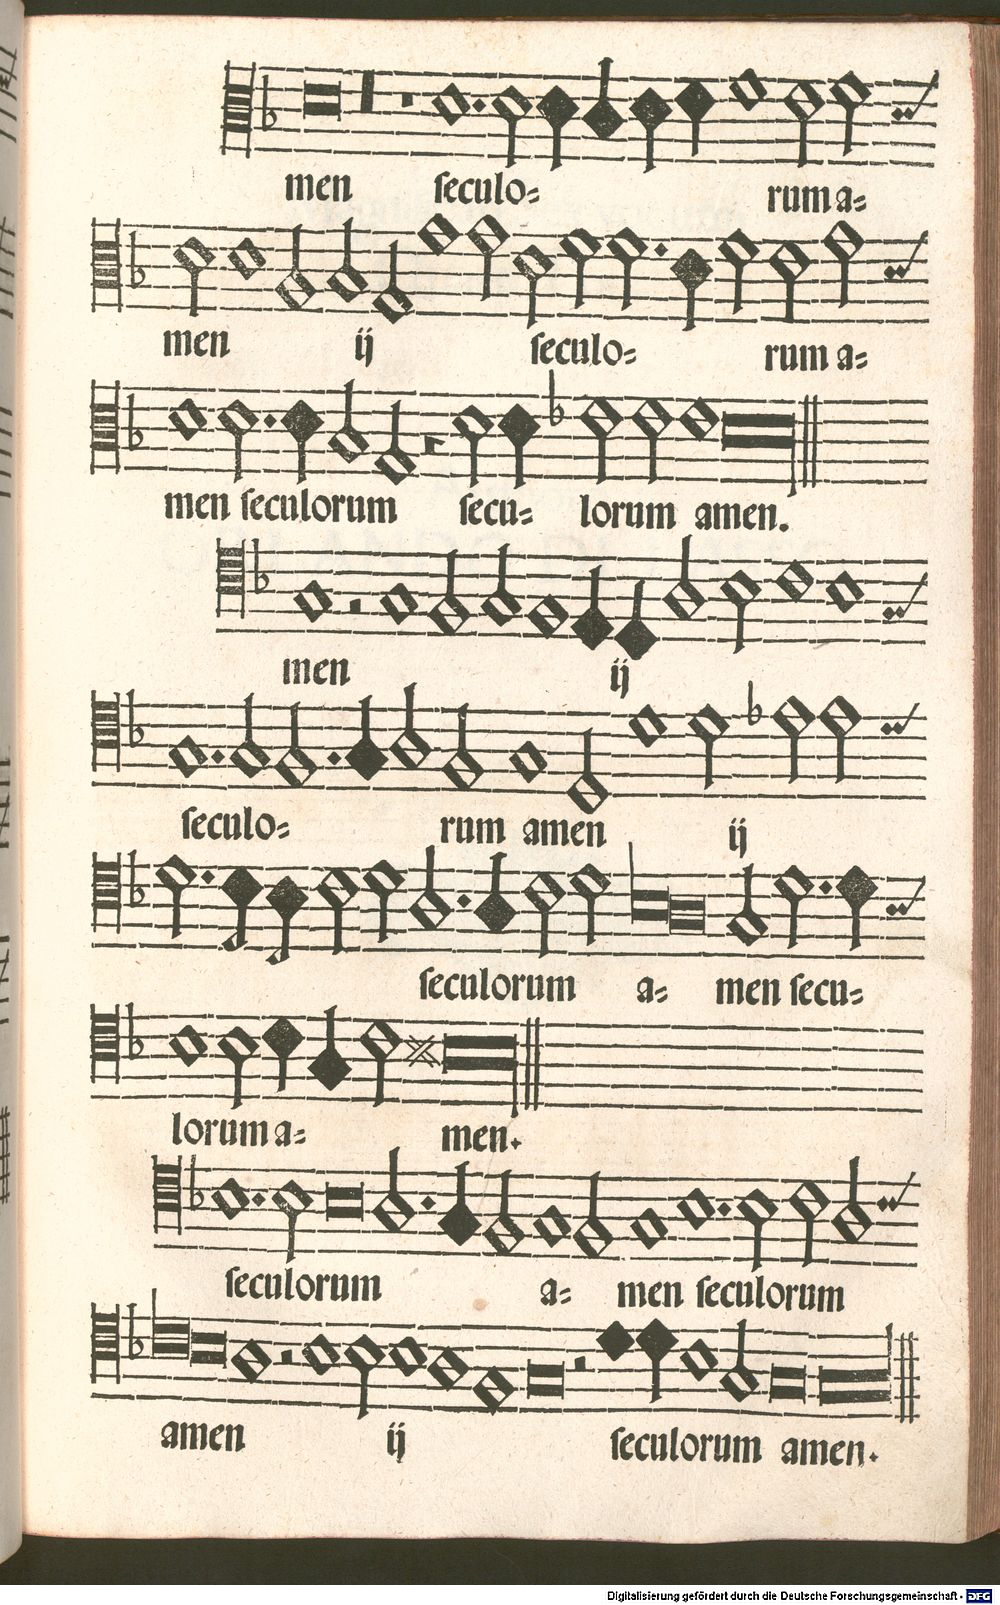 men ſeculo⸗ rum a⸗
men ij ſeculo⸗ rum a⸗
men ſeculorum ſecu⸗ lorum amen.
men ij
ſeculo⸗ rum amen ij
ſeculorum a⸗ men ſecu⸗
lorum a⸗ men.
ſeculorum a⸗ men ſeculorum
amen ij ſeculorum amen.
Digitalisierung gefördert durch die Deutsche Forschungsgemeinschaft - DFG